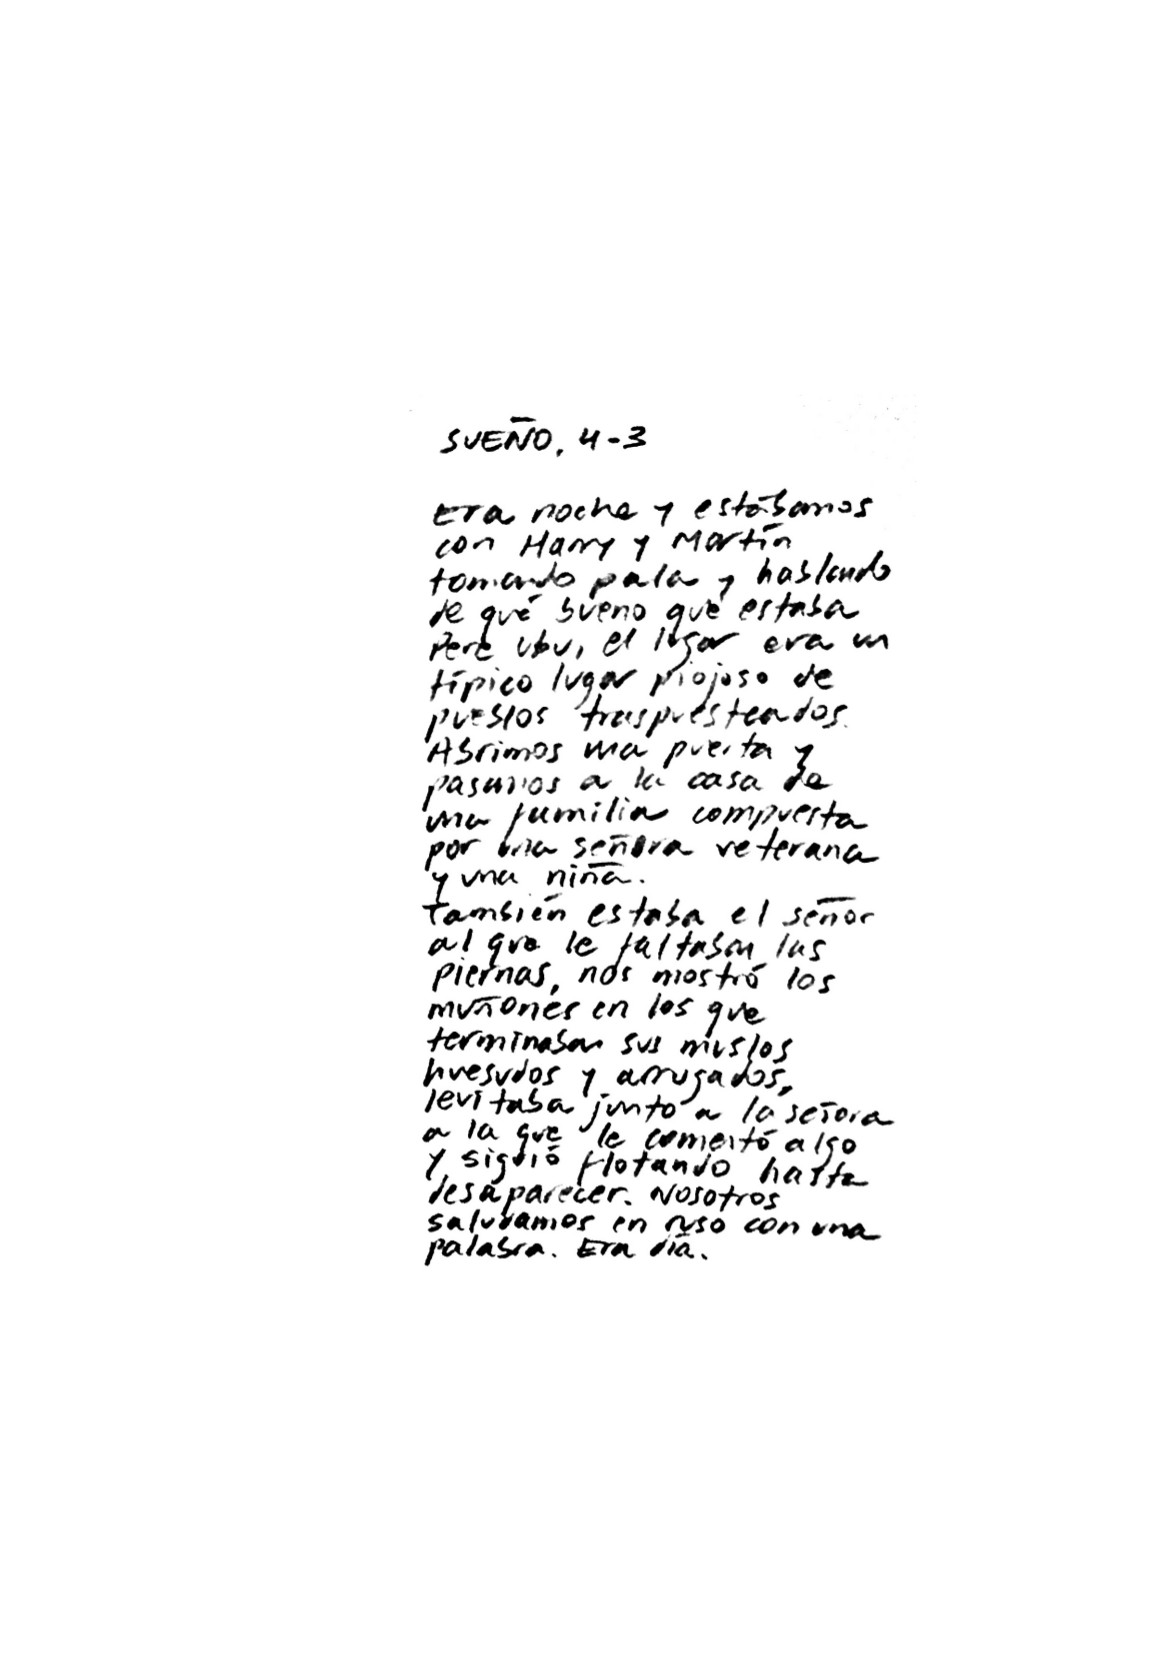 SUEÑO, 4-3
Era noche y estábamos
con Harry y Martín
tomando pala y hablando
de qué bueno que estaba
Pere Ubu, el lugar era un
típico lugar piojoso de
pueblos traspuesteados.
Abrimos una puerta y
pasamos a la casa de
una familia compuesta
por una señora veterana
y una niña.
También estaba el señor
al que le faltaban las
piernas, nos mostró los
muñones en los que
terminaban sus muslos
huesudos y arrugados,
levitaba junto a la señora
a la que le comentó algo
y siguió flotando hasta
desaparecer. Nosotros
saludamos en ruso con una
palabra. Era día.